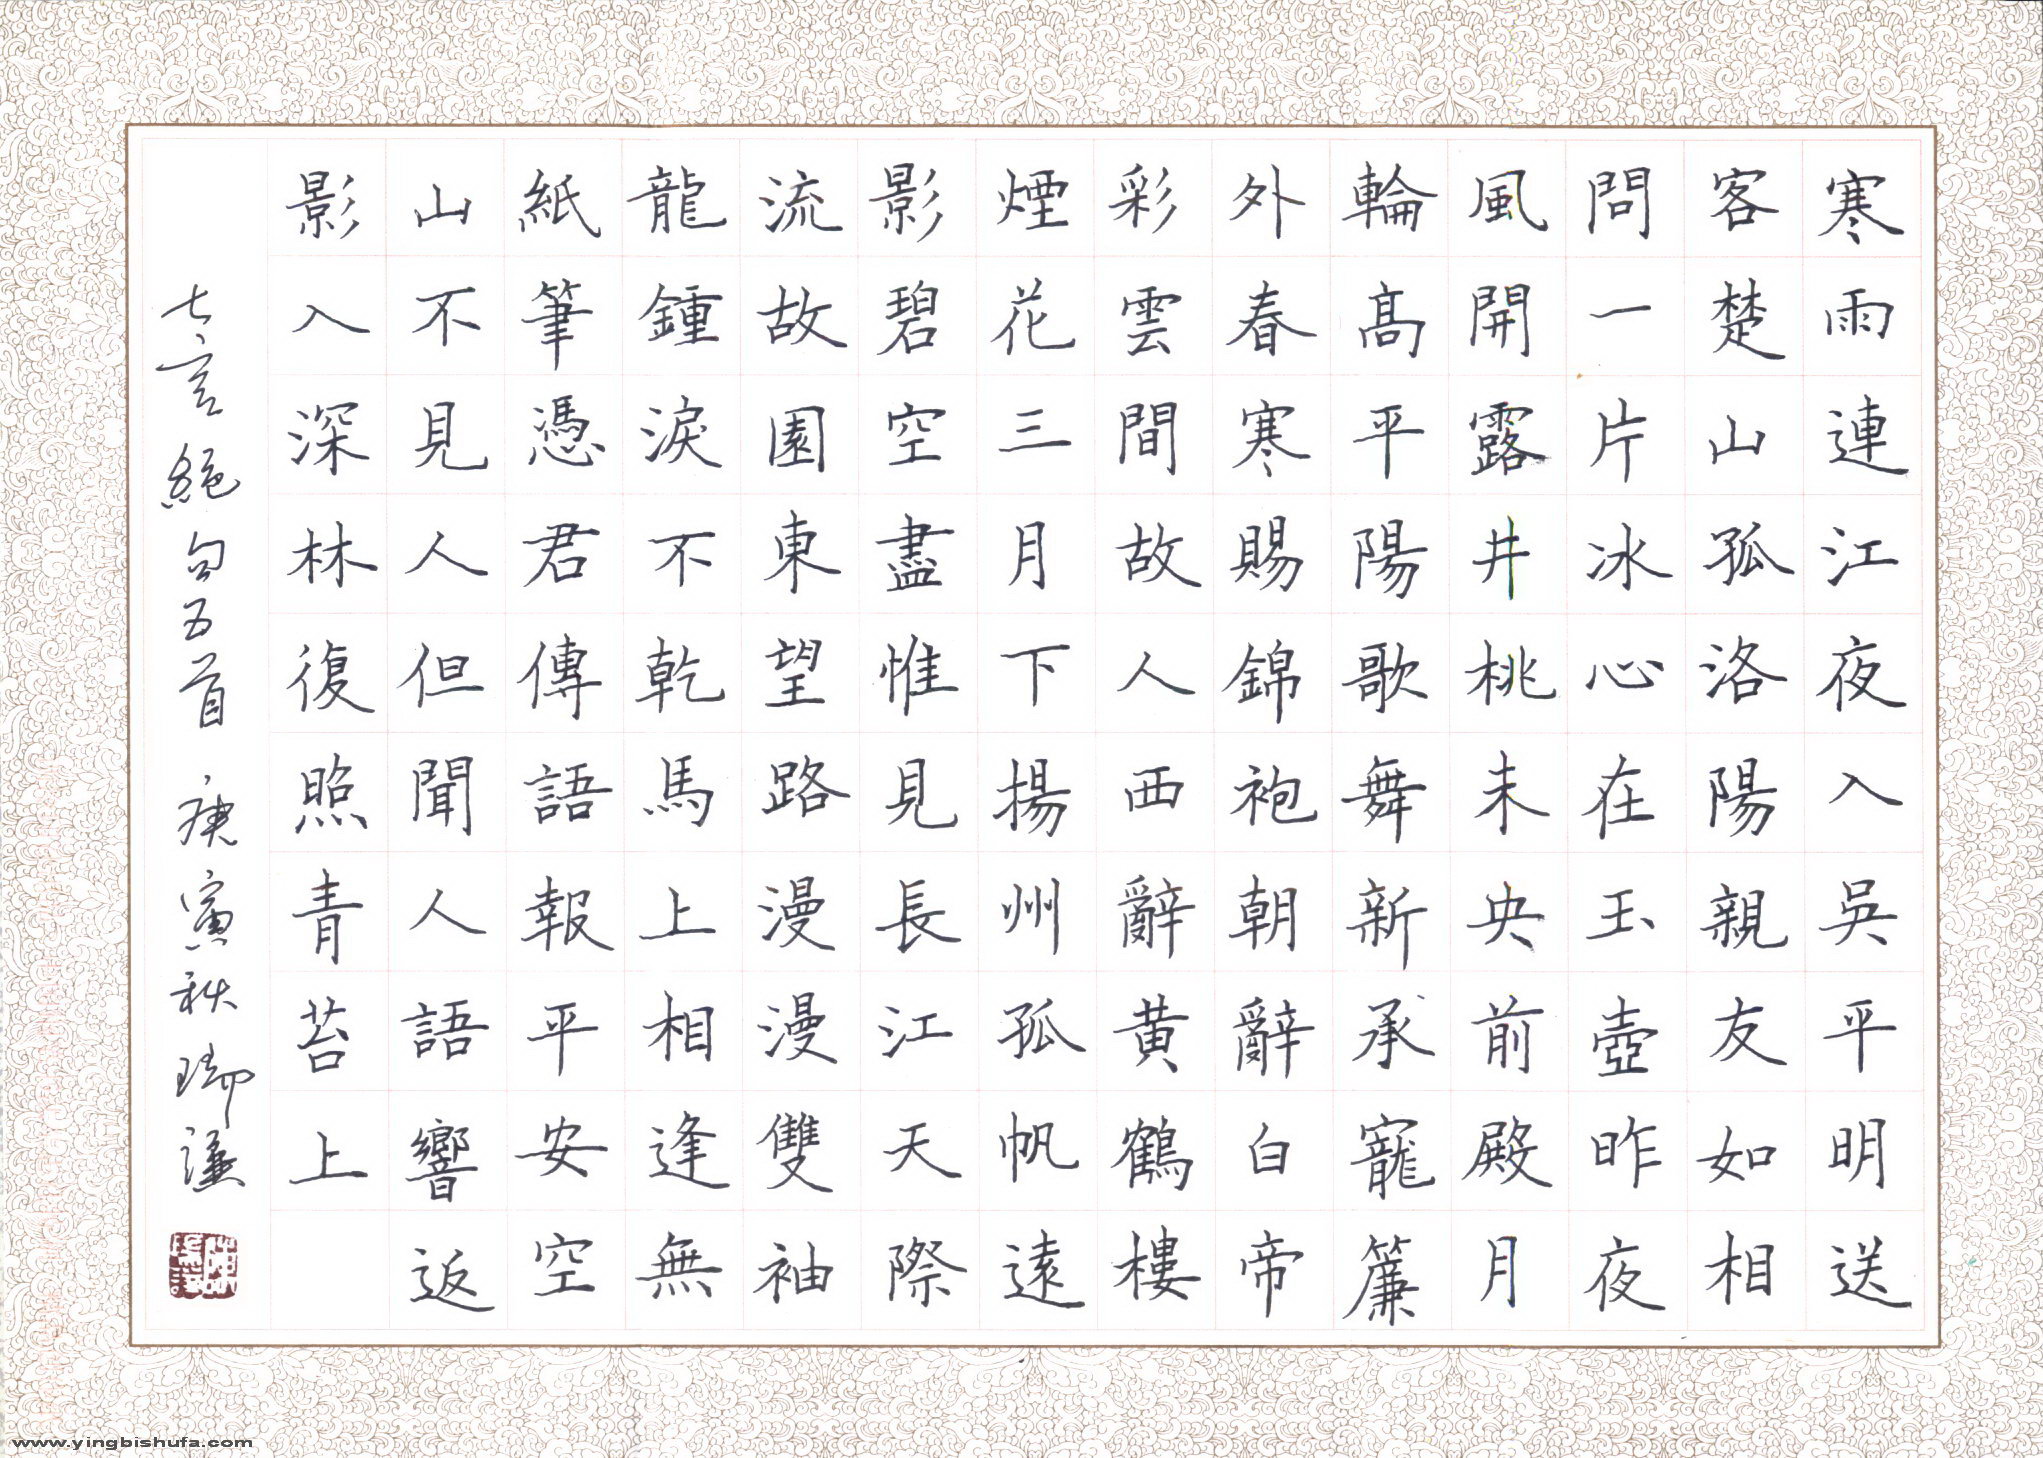 寒雨連江夜入吳平明送
客楚山孤洛陽親友如相
問一片冰心在玉壺昨夜
風開露井桃未央前殿月
輪高平陽歌舞新承寵簾
外春寒賜錦袍朝辭白帝
彩雲間故人西辭黃鶴樓
煙花三月下揚州孤帆遠
影碧空盡惟見長江天際
流故園東望路漫漫雙袖
龍鍾淚不乾馬上相逢無
紙筆憑君傳語報平安空
山不見人但聞人語響返
影入深林復照青苔上
七言絕句五首庚寅秋瑞謙
www.yingbishufa.com